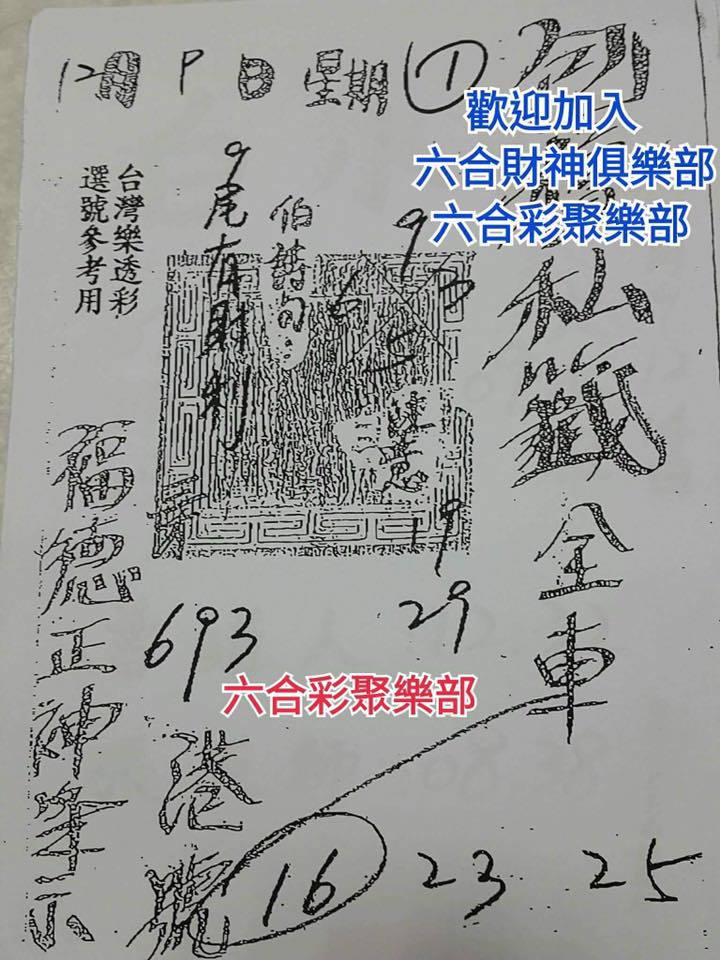 12月 9 日 星期 ①
歡迎加入
六合財神俱樂部
六合彩聚樂部
私籤全車
台灣樂透彩
選號參考用
9尾有財利
伯對句
9
6
19
29
693
六合彩聚樂部
福德正神筆示
港號
16 23 25